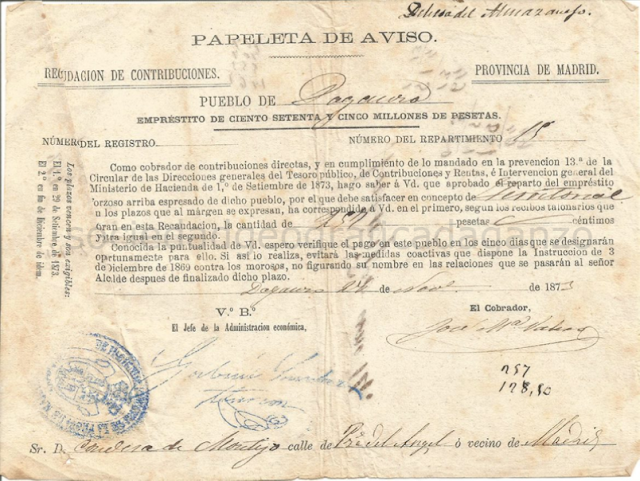 Dehesa del Almazanejo.
PAPELETA DE AVISO.
RECAUDACION DE CONTRIBUCIONES.
PROVINCIA DE MADRID.
PUEBLO DE Daganzo
EMPRÉSTITO DE CIENTO SETENTA Y CINCO MILLONES DE PESETAS.
NÚMERO DEL REGISTRO.
NÚMERO DEL REPARTIMIENTO 15
Como cobrador de contribuciones directas, y en cumplimiento de lo mandado en la prevencion 13.ª de la
Circular de las Direcciones generales del Tesoro público, de Contribuciones y Rentas, é Intervencion general del
Ministerio de Hacienda de 1.º de Setiembre de 1873, hago saber á Vd. que aprobado el reparto del empréstito
orzoso arriba espresado de dicho pueblo, por el que debe satisfacer en concepto de Territorial
n los plazos que al márgen se expresan, ha correspondido á Vd. en el primero, según los recibos talonarios que
bran en esta Recaudación, la cantidad de pesetas céntimos
otra igual en el segundo.
Conocida la puntualidad de Vd. espero verifique el pago en este pueblo en los cinco dias que se designarán
oportunamente para ello. Si así lo realiza, evitará las medidas coactivas que dispone la Instruccion de 3
de Diciembre de 1869 contra los morosos, no figurando su nombre en las relaciones que se pasarán al señor
Alcalde despues de finalizado dicho plazo.
Daganzo de Novb. 1873
V.º B.º
El Jefe de la Administracion económica,
El Cobrador,
José M.ª
257
128,50
Sr. D. Condesa de Montijo calle de Pza del Angel ó vecino de Madrid
Los plazos vencen y son exigibles:
El 1.º en 29 de Setiembre de 1873.
El 2.º en fin de Diciembre de idem.